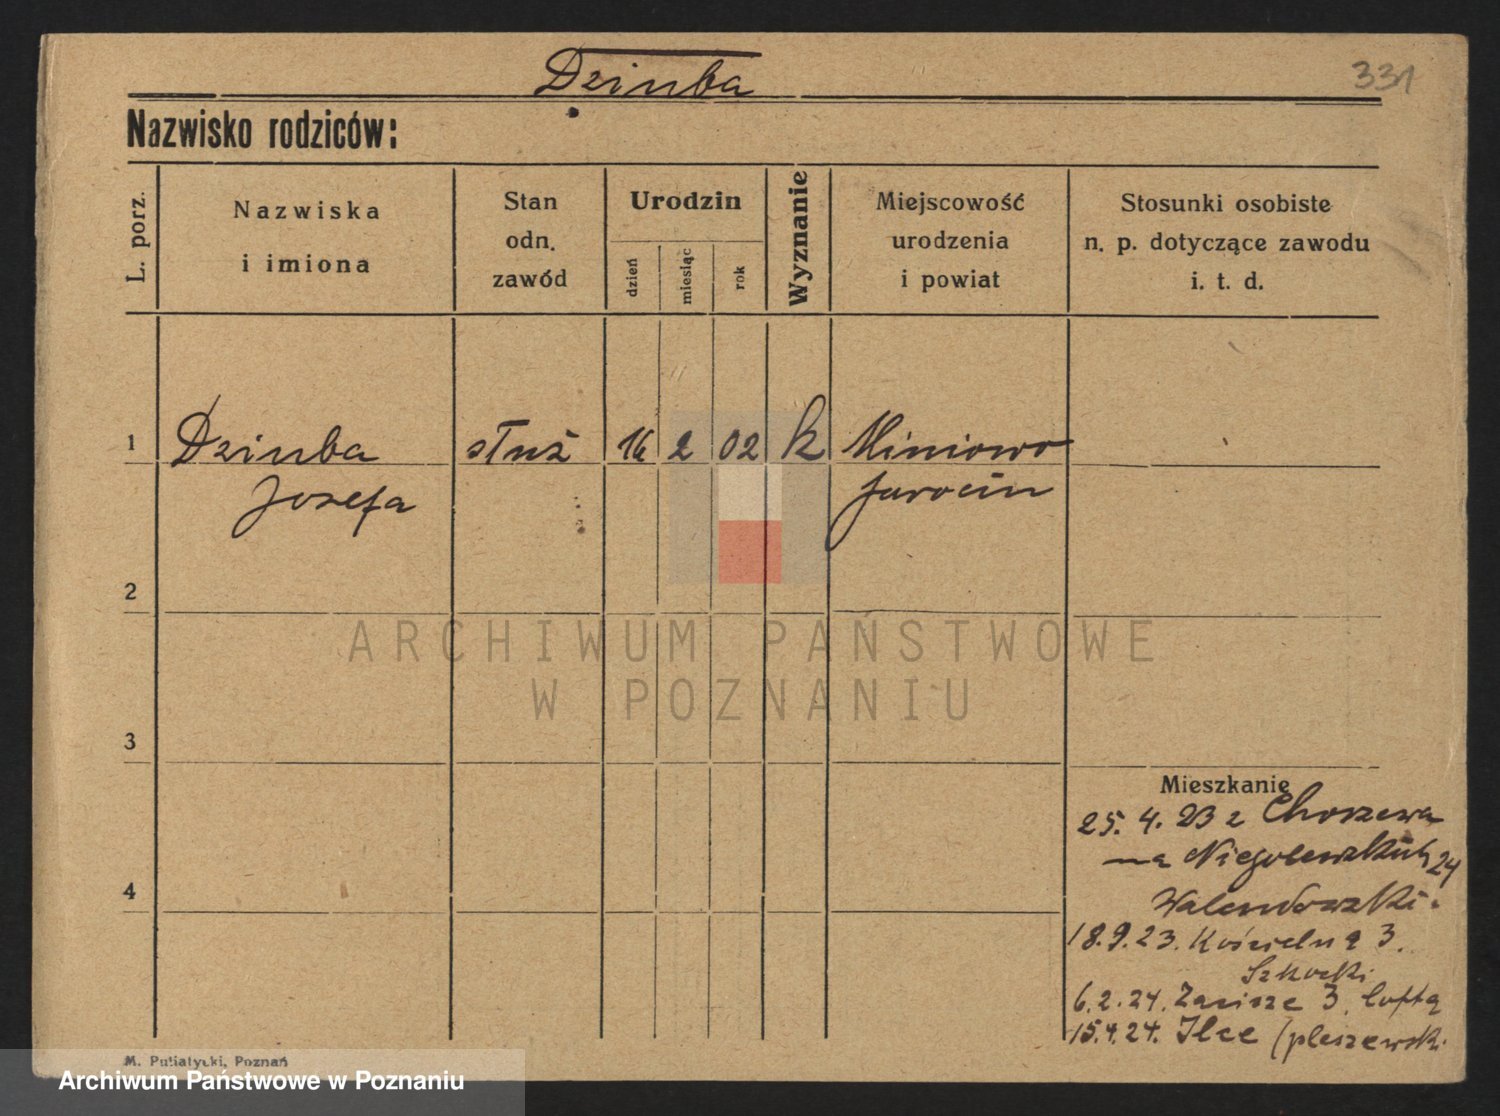 Dziuba
331
Nazwisko rodziców:
L. porz.
Nazwiska
i imiona
Stan
odn.
zawód
Urodzin
dzień
miesiąc
rok
Wyznanie
Miejscowość
urodzenia
i powiat
Stosunki osobiste
n. p. dotyczące zawodu
i. t. d.
1 Dziuba służ 16 2 02 k Miniowo
Josefa Jarocin
2
ARCHIWUM PAŃSTWOWE
W POZNANIU
3
Mieszkanie
25. 4. 23 z Choszewa
na Niegolewskich 24
Walendowski.
18. 9. 23. Kościelna 3.
Szkocki
6. 2. 24. Zacisze 3.
15. 4. 24. Ilce (pleszewski
4
M. Putiatycki, Poznań
Archiwum Państwowe w Poznaniu